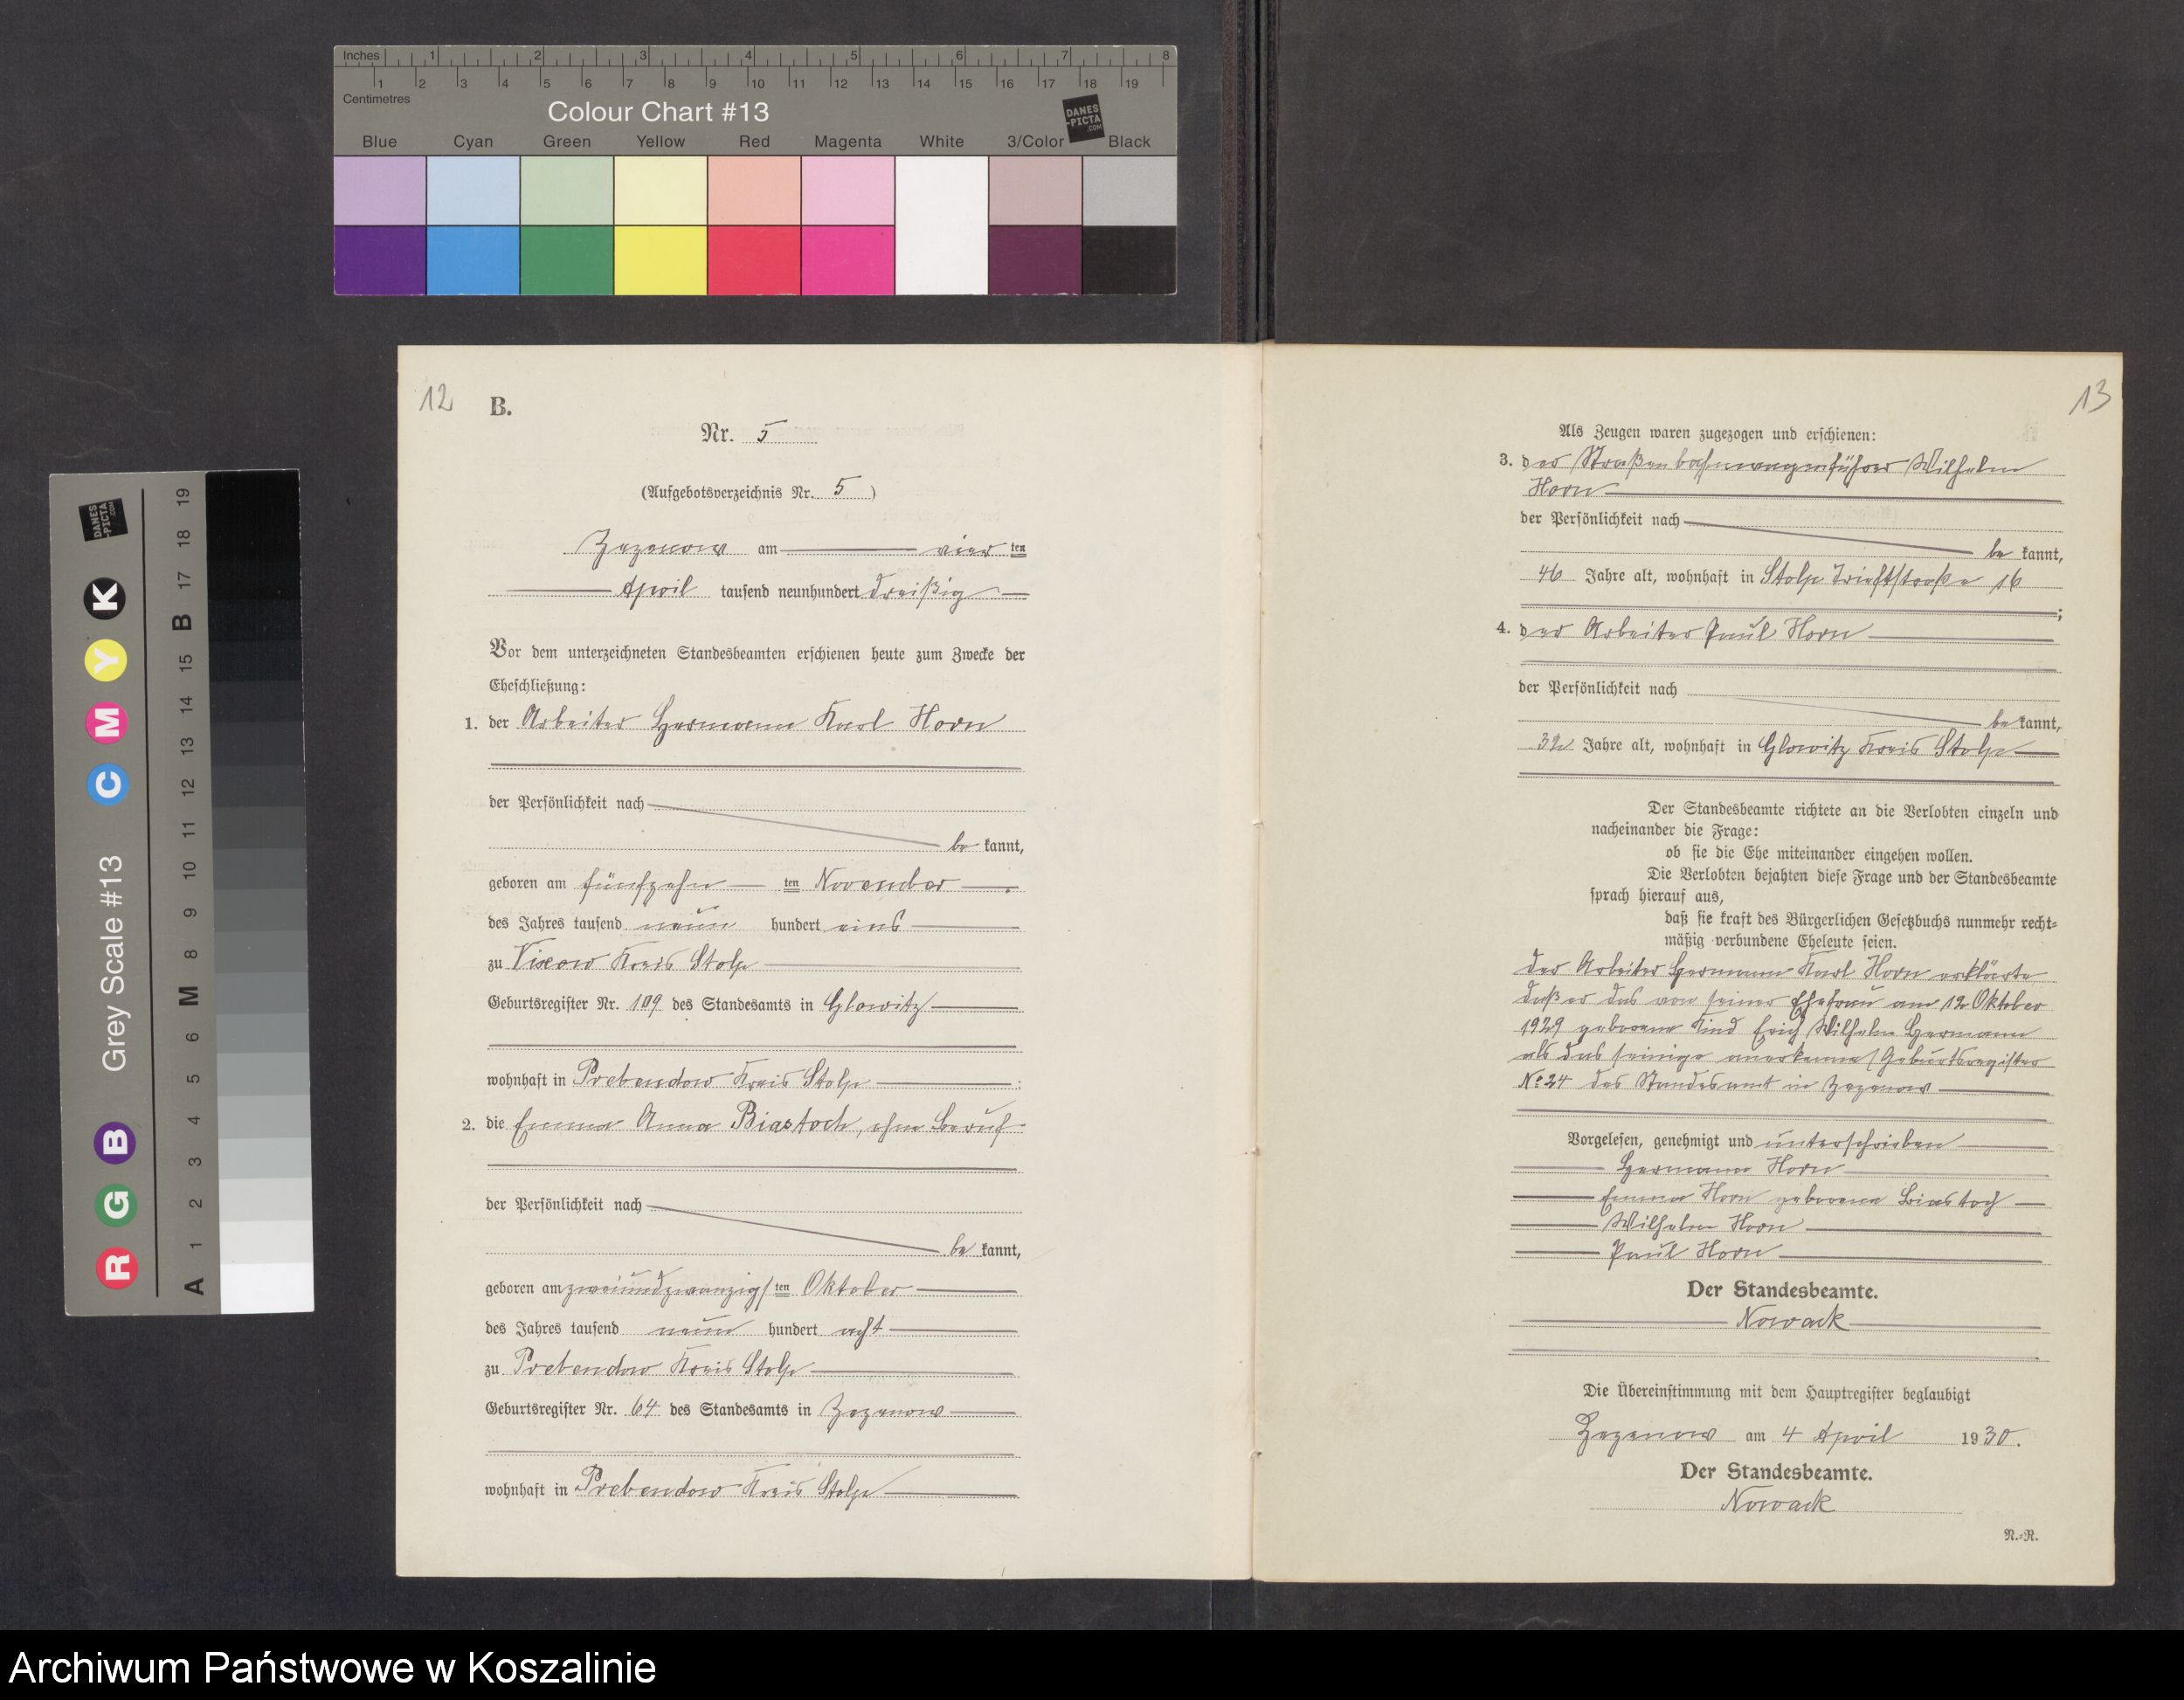 Inches 1 2 3 4 5 6 7 8
1 2 3 4 5 6 7 8 9 10 11 12 13 14 15 16 17 18 19
Centimetres
Colour Chart #13
DANES-PICTA.COM
Blue Cyan Green Yellow Red Magenta White 3/Color Black
DANES-PICTA.COM
Grey Scale #13
R G B C M Y K
A 1 2 3 4 5 6 M 8 9 10 11 12 13 14 15 B 17 18 19
12
B.
Nr. 5
(Aufgebotsverzeichnis Nr. 5)
Zezenow am vierten
April tausend neunhundert dreißig
Vor dem unterzeichneten Standesbeamten erschienen heute zum Zwecke der
Eheschließung:
1. der Arbeiter Hermann Karl Horn
der Persönlichkeit nach
bekannt,
geboren am fünfzehnten November
des Jahres tausend neunhundert eins
zu Vixow Kreis Stolp
Geburtsregister Nr. 109 des Standesamts in Glowitz
wohnhaft in Prebendow Kreis Stolp
2. die Emma Anna Biastoch, ohne Beruf
der Persönlichkeit nach
bekannt,
geboren am zweiundzwanzigsten Oktober
des Jahres tausend neunhundert acht
zu Prebendow Kreis Stolp
Geburtsregister Nr. 64 des Standesamts in Zezenow
wohnhaft in Prebendow Kreis Stolp
13
Als Zeugen waren zugezogen und erschienen:
3. der Straßenbahnwagenführer Wilhelm
Horn
der Persönlichkeit nach
bekannt,
46 Jahre alt, wohnhaft in Stolp Triftstraße 16
;
4. der Arbeiter Paul Horn
der Persönlichkeit nach
bekannt,
32 Jahre alt, wohnhaft in Glowitz Kreis Stolp
Der Standesbeamte richtete an die Verlobten einzeln und
nacheinander die Frage:
ob sie die Ehe miteinander eingehen wollen.
Die Verlobten bejahten diese Frage und der Standesbeamte
sprach hierauf aus,
daß sie kraft des Bürgerlichen Gesetzbuchs nunmehr recht-
mäßig verbundene Eheleute seien.
Der Arbeiter Hermann Karl Horn erklärte
daß er das von seiner Ehefrau am 12 Oktober
1929 geborene Kind Erich Wilhelm Hermann
als das seinige anerkenne / Geburtsregister
No 24 des Standesamt in Zezenow
Vorgelesen, genehmigt und unterschrieben
Hermann Horn
Emma Horn geborene Biastoch
Wilhelm Horn
Paul Horn
Der Standesbeamte.
Nowack
Die Übereinstimmung mit dem Hauptregister beglaubigt
Zezenow am 4 April 1930.
Der Standesbeamte.
Nowack
N.-R.
Archiwum Państwowe w Koszalinie